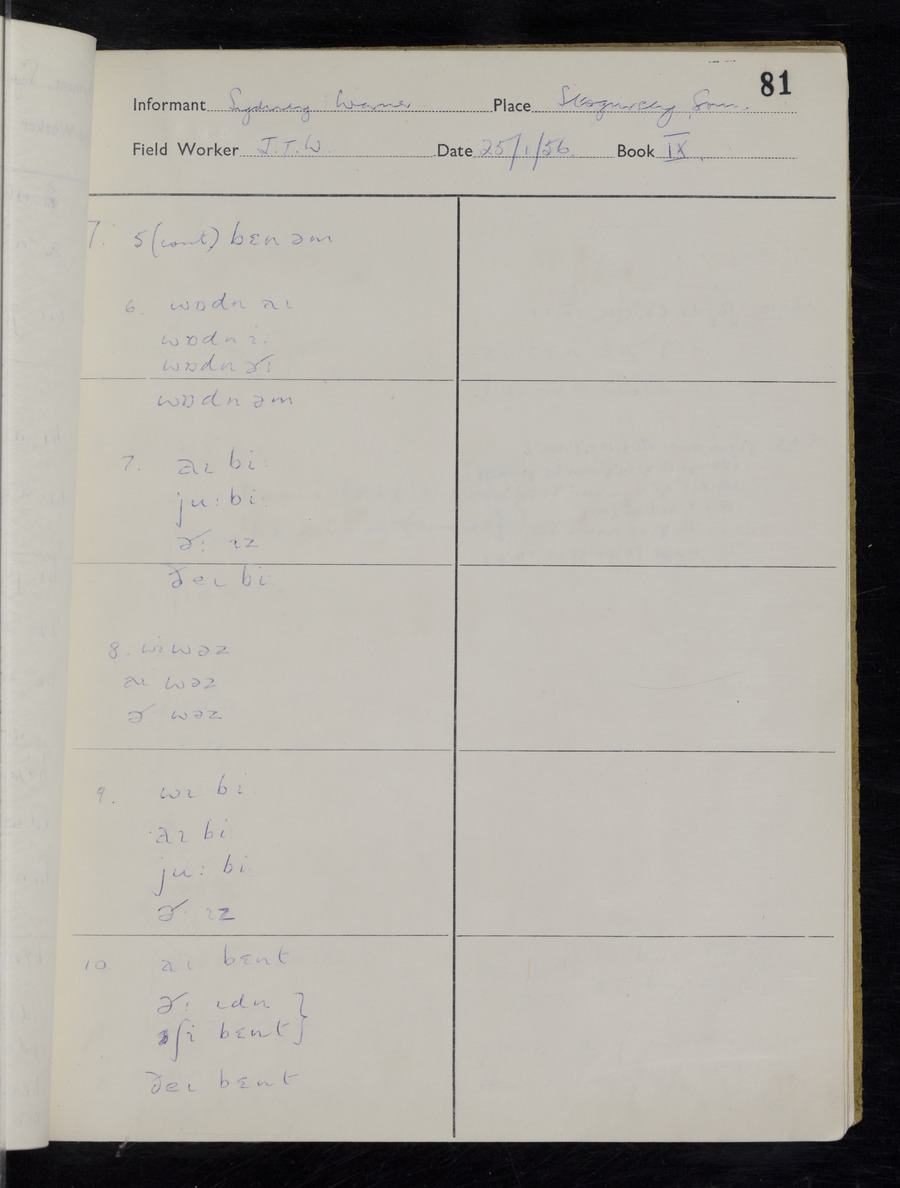 81
Informant Sydney Warner Place Stogursey, Som.
Field Worker J.T.W. Date 25/1/56. Book IX
7. 5 (cont) bɛn əm
6. wɒdn aɪ
wɒdn i:
wɒdn ɚ:
wɒdn əm
7. aɪ bi:
ju: bi:
ɚ: ɪz
ðeɪ bi:
8. wi wəz
aɪ wəz
ɚ wəz
9. wi bi:
aɪ bi:
ju: bi:
ɚ: ɪz
10. aɪ bɛnt
ɚ: ɪdn }
ʃi bɛnt }
ðeɪ bɛnt